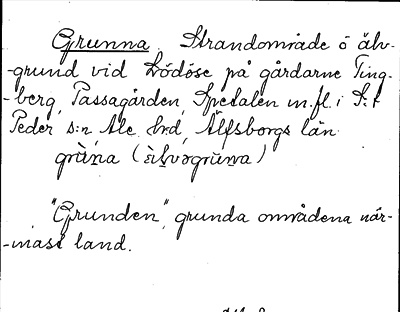 Grunna. Strandområde ö älv-
-grund vid Lödöse på gårdarne Ting-
-berg, Passagården, Spetalen m.fl. i S:t
Peder s:n, Ale hrd, Älfsborgs län
grùna (
"Grunden", grunda områdena när-
-mast land.